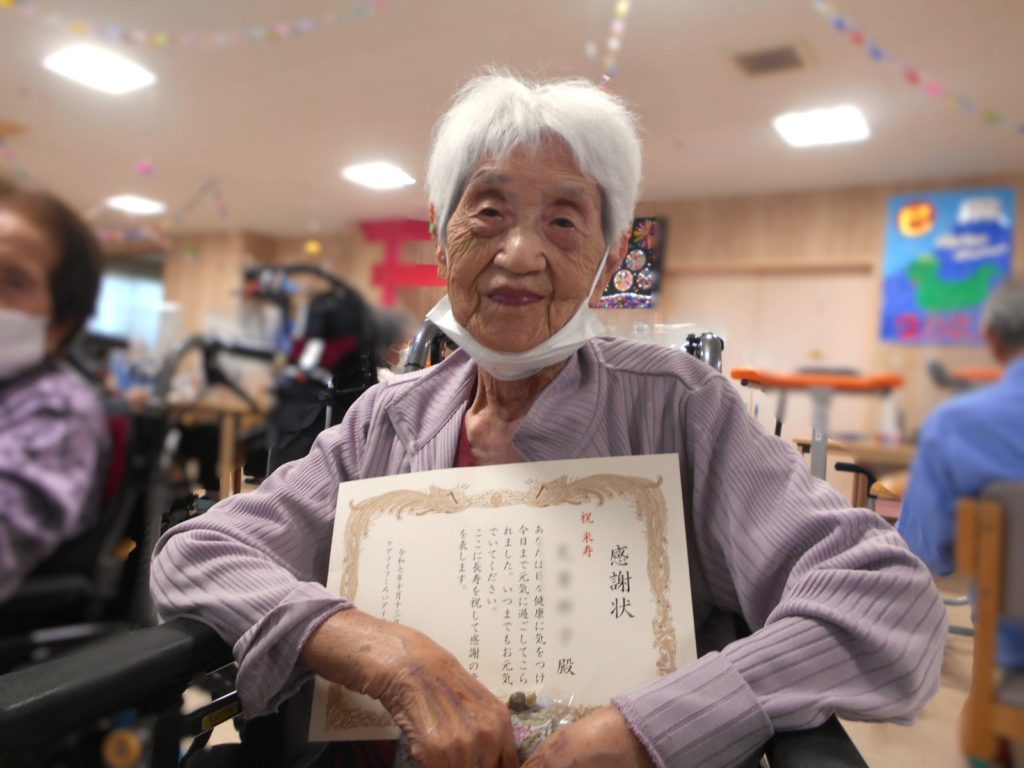 感謝状
祝 米寿
殿
あなたは日々健康に気をつけ
今日まで元気に過ごしてこら
れました。いつまでもお元気
でいてください。
ここに長寿を祝して感謝の
を表します。
令和七年十月十三